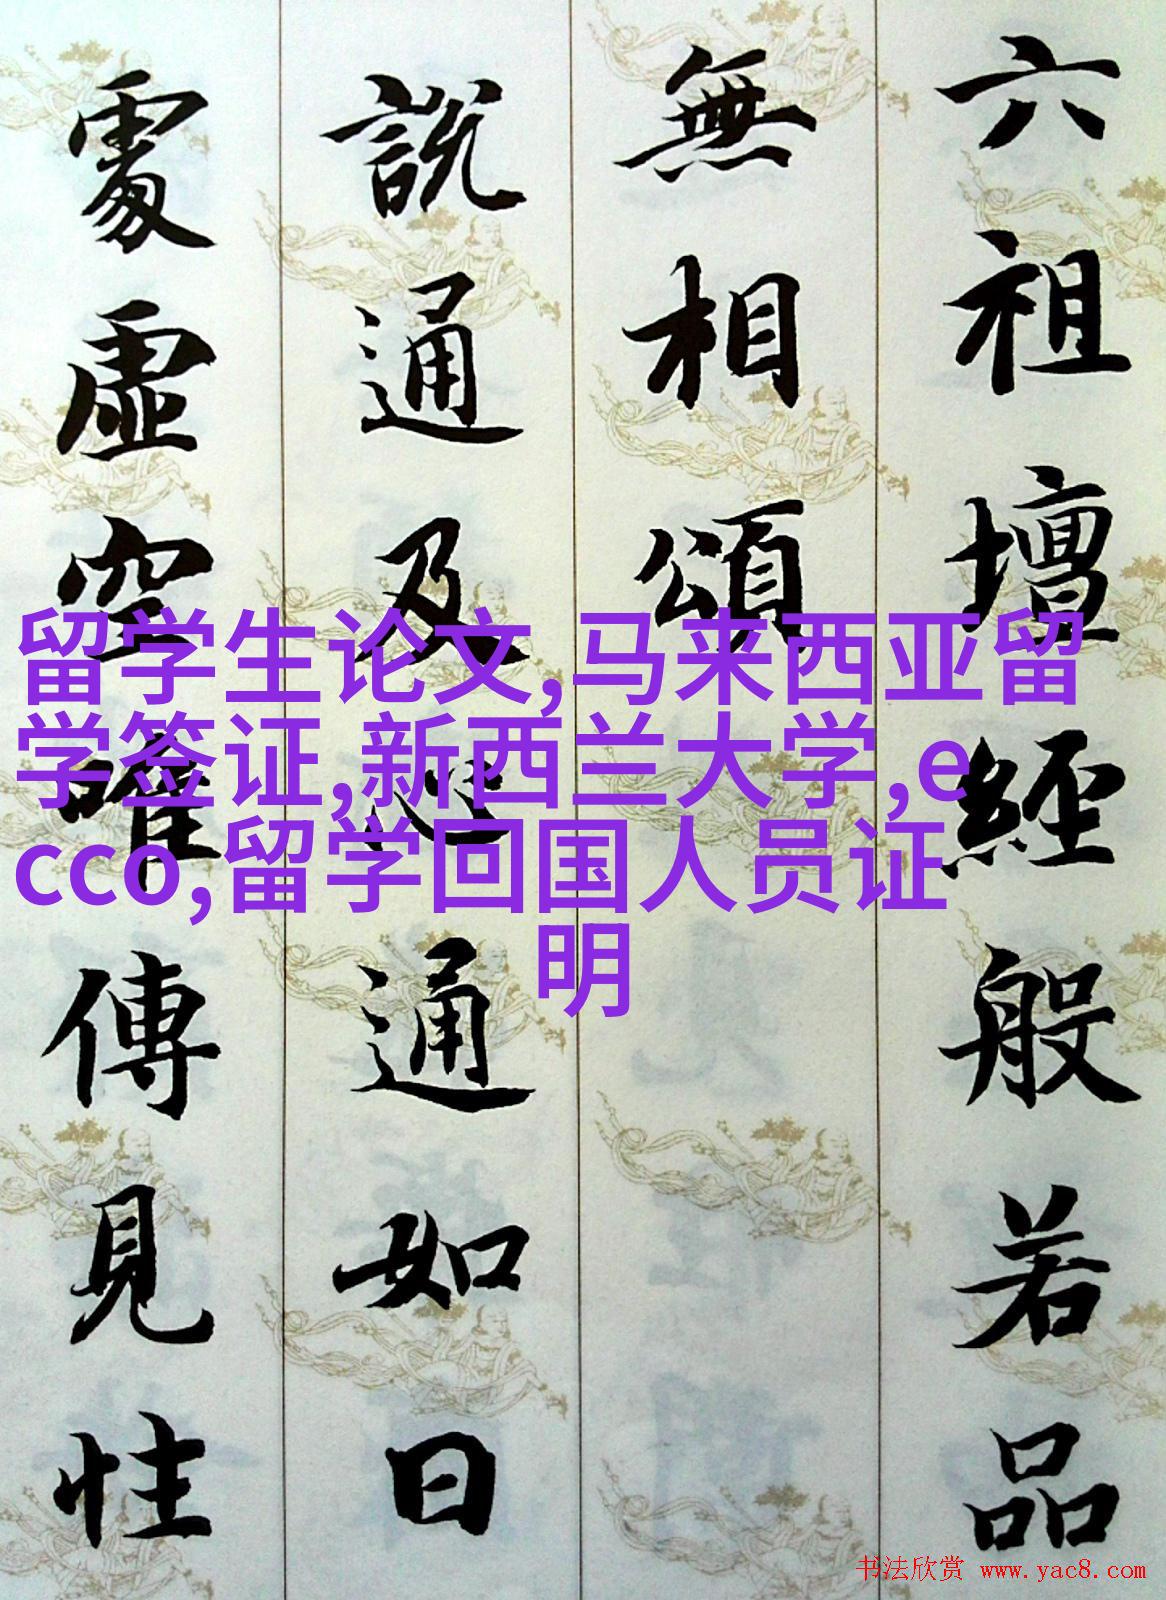 六祖壇經般若品
無相頌
說通及心通如日
處虛空唯傳見性
留学生论文,马来西亚留
学签证,新西兰大学,e
cco,留学回国人员证
明
书法欣赏 www.yac8.com